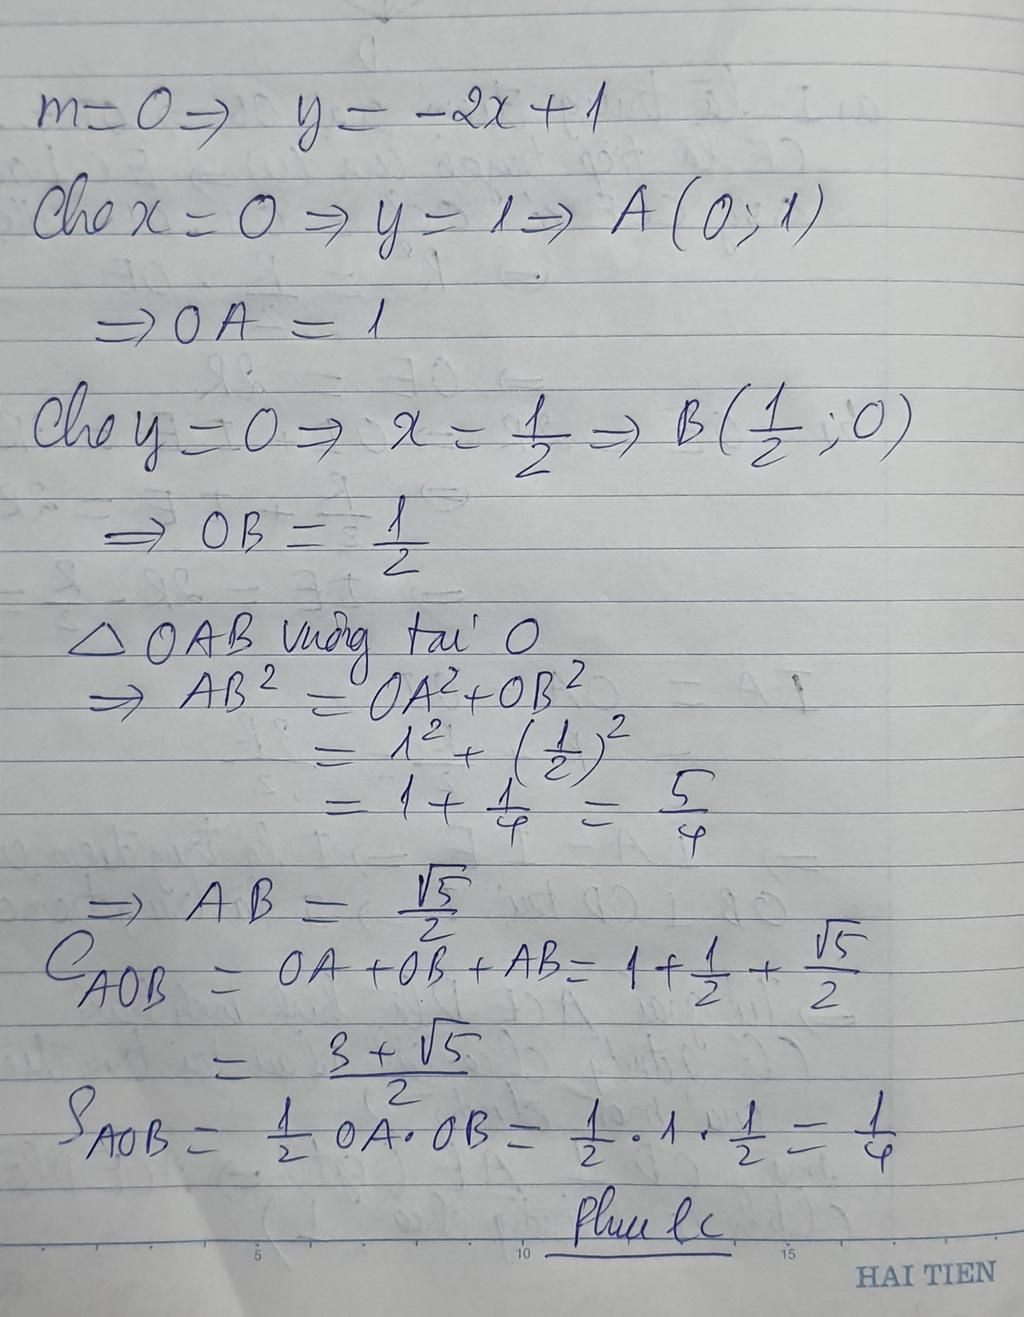 m=0 ⇒ y = -2x + 1
Cho x = 0 ⇒ y = 1 ⇒ A(0; 1)
⇒ OA = 1
Cho y = 0 ⇒ x = 1/2 ⇒ B(1/2; 0)
⇒ OB = 1/2
△ OAB vuông tại O
⇒ AB² = OA² + OB²
= 1² + (1/2)²
= 1 + 1/4 = 5/4
⇒ AB = √5/2
C_AOB = OA + OB + AB = 1 + 1/2 + √5/2
= (3 + √5)/2
S_AOB = 1/2 OA · OB = 1/2 · 1 · 1/2 = 1/4
5 10 15
HAI TIEN